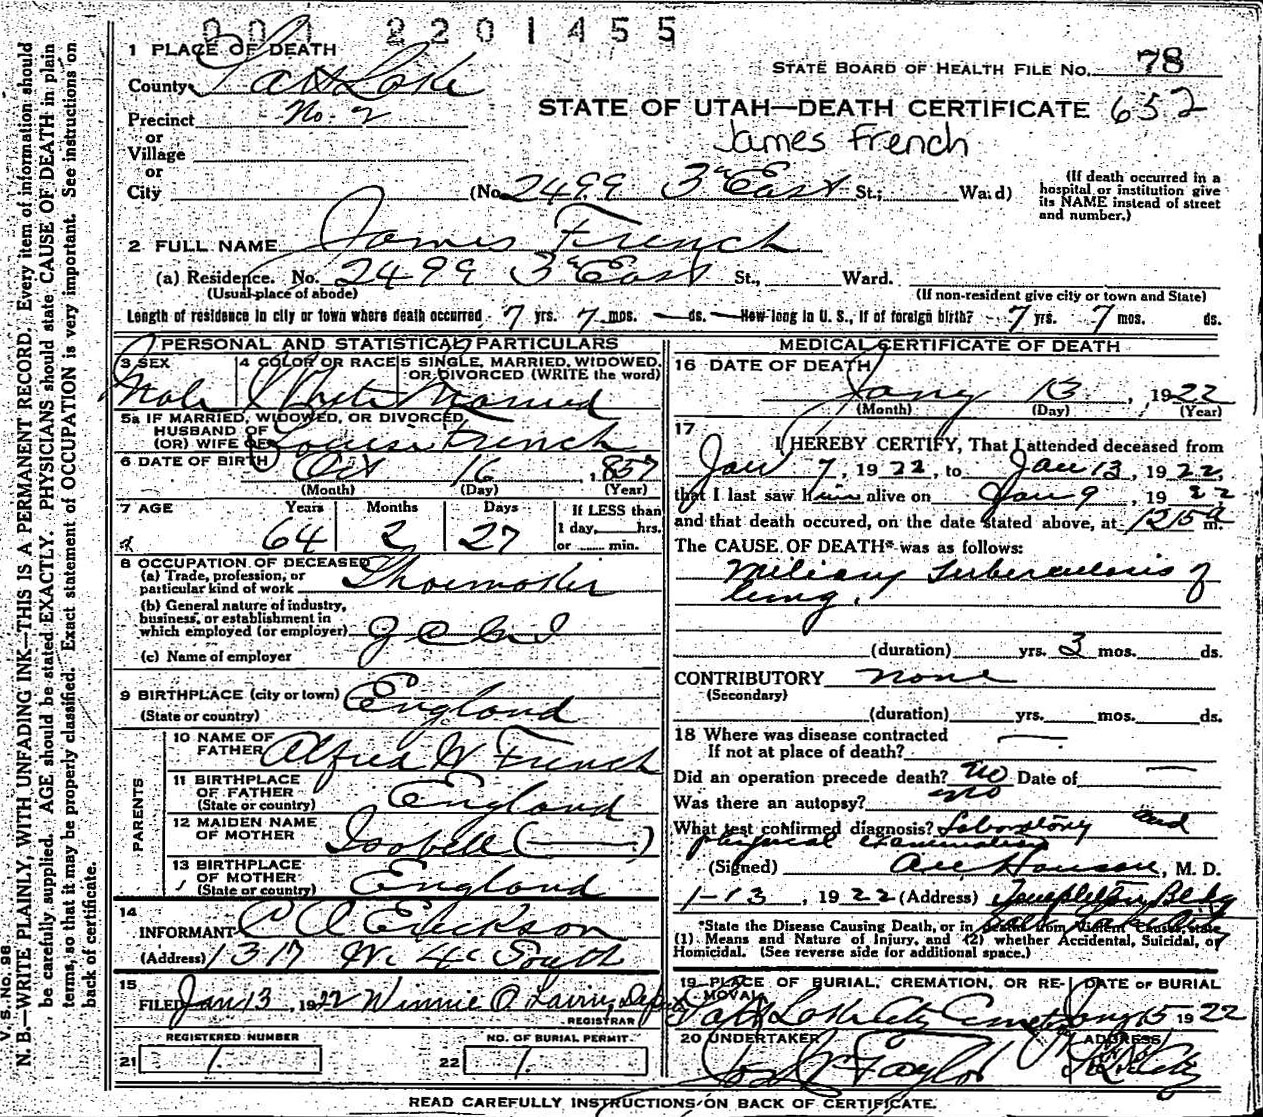 2201455
1 PLACE OF DEATH
STATE BOARD OF HEALTH FILE No. 78
County Salt Lake
STATE OF UTAH—DEATH CERTIFICATE 652
Precinct No. 2
James French
or
Village
or
City (No. 2499 3rd East St.; Ward)
(If death occurred in a
hospital or institution give
its NAME instead of street
and number.)
2 FULL NAME James French
(a) Residence. No. 2499 3rd East St., Ward.
(Usual place of abode) (If non-resident give city or town and State)
Length of residence in city or town where death occurred 7 yrs. 7 mos. — ds. How long in U. S., if of foreign birth? 7 yrs. 7 mos. ds.
PERSONAL AND STATISTICAL PARTICULARS
3 SEX 4 COLOR OR RACE 5 SINGLE, MARRIED, WIDOWED,
OR DIVORCED (WRITE the word)
Male White Married
5a IF MARRIED, WIDOWED, OR DIVORCED
HUSBAND OF
(OR) WIFE OF Louise French
6 DATE OF BIRTH Oct 16, 1857
(Month) (Day) (Year)
7 AGE Years Months Days If LESS than
1 day, hrs.
64 2 27 or min.
8 OCCUPATION OF DECEASED
(a) Trade, profession, or
particular kind of work Shoemaker
(b) General nature of industry,
business, or establishment in
which employed (or employer)
(c) Name of employer
9 BIRTHPLACE (city or town) England
(State or country)
PARENTS
10 NAME OF
FATHER Alfred W French
11 BIRTHPLACE
OF FATHER England
(State or country)
12 MAIDEN NAME
OF MOTHER Isobell (——)
13 BIRTHPLACE
OF MOTHER England
(State or country)
14
INFORMANT C A Erickson
(Address) 1317 W. 4th South
15
FILED Jan 13, 1922 Winnie O.
REGISTRAR
REGISTERED NUMBER NO. OF BURIAL PERMIT
21 1 22 1
MEDICAL CERTIFICATE OF DEATH
16 DATE OF DEATH
Jany 13, 1922
(Month) (Day) (Year)
17
I HEREBY CERTIFY, That I attended deceased from
Jan 7, 1922, to Jan 13, 1922,
that I last saw him alive on Jan 9, 1922
and that death occured, on the date stated above, at 1215 a m.
The CAUSE OF DEATH* was as follows:
Miliary Tuberculosis of
lung.
(duration) yrs. 3 mos. ds.
CONTRIBUTORY none
(Secondary)
(duration) yrs. mos. ds.
18 Where was disease contracted
If not at place of death? —
Did an operation precede death? no Date of —
Was there an autopsy? no
What test confirmed diagnosis? Laboratory and
physical examination
(Signed) M. D.
1-13, 1922 (Address) Templeton Bldg
Salt Lake City
*State the Disease Causing Death, or in deaths from Violent Causes, state
(1) Means and Nature of Injury, and (2) whether Accidental, Suicidal, or
Homicidal. (See reverse side for additional space.)
19 PLACE OF BURIAL, CREMATION, OR RE- DATE OF BURIAL
MOVAL
Salt Lake City Cemetery Jany 15 1922
20 UNDERTAKER ADDRESS
Jos Wm Taylor S L City
READ CAREFULLY INSTRUCTIONS ON BACK OF CERTIFICATE.
V. S. No. 98
N. B.—WRITE PLAINLY, WITH UNFADING INK—THIS IS A PERMANENT RECORD. Every item of information should
be carefully supplied. AGE should be stated EXACTLY. PHYSICIANS should state CAUSE OF DEATH in plain
terms, so that it may be properly classified. Exact statement of OCCUPATION is very important. See instructions on
back of certificate.